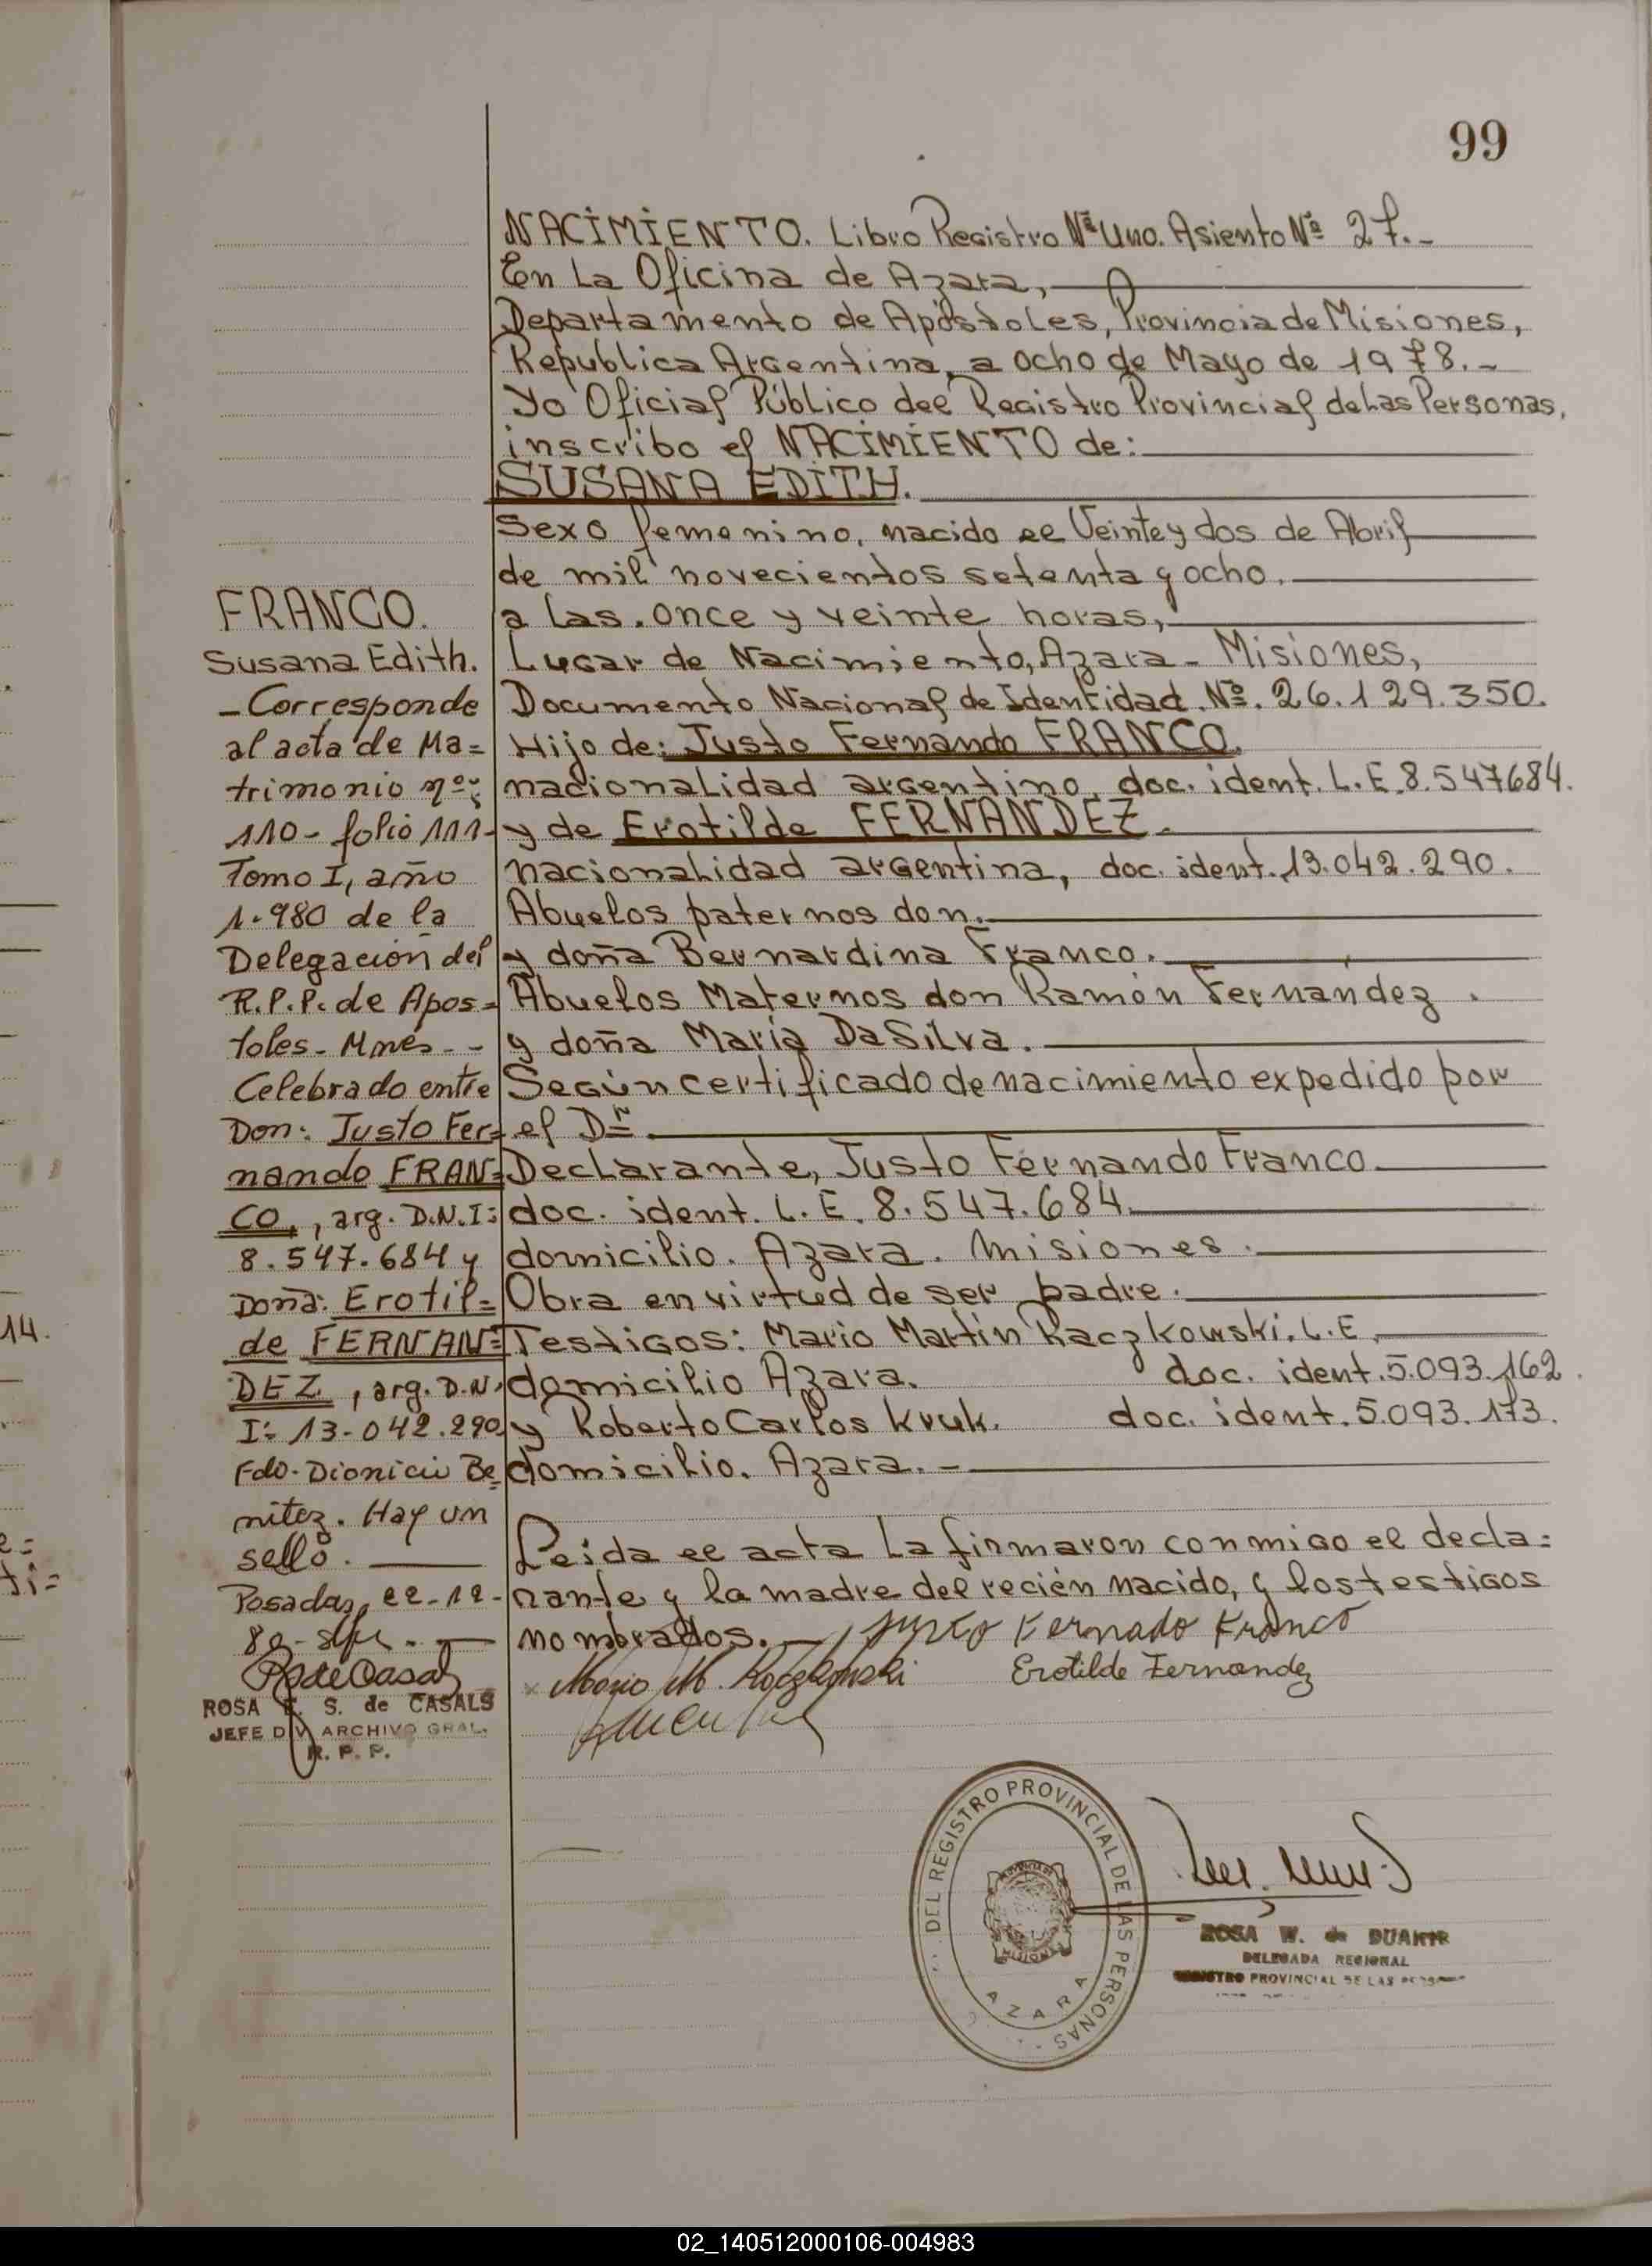 99
NACIMIENTO. Libro Registro Nº Uno. Asiento Nº 27.-
En La Oficina de Azara,
Departamento de Apóstoles, Provincia de Misiones,
Republica Argentina, a ocho de Mayo de 1978.-
Yo Oficial Público del Registro Provincial de Las Personas,
inscribo el NACIMIENTO de:
SUSANA EDITH.
Sexo femenino, nacido el Veinte y dos de Abril
de mil novecientos setenta y ocho.
a las. once y veinte horas,
Lugar de Nacimiento, Azara - Misiones,
Documento Nacional de Identidad. Nº. 26.129.350.
Hijo de: Justo Fernando FRANCO.
nacionalidad argentino, doc. ident. L.E. 8.547684.
y de Erotilde FERNANDEZ.
nacionalidad argentina, doc. ident. 13.042.290.
Abuelos paternos don.
y doña Bernardina Franco.
Abuelos Maternos don Ramón Fernandez.
y doña María DaSilva.
Según certificado de nacimiento expedido por
el Dr.
Declarante, Justo Fernando Franco
doc. ident. L.E. 8.547.684.
domicilio. Azara. Misiones.
Obra en virtud de ser padre.
Testigos: Mario Martín Raczkowski. L.E.
domicilio Azara. doc. ident. 5.093.162.
y Roberto Carlos Kruk. doc. ident. 5.093.173.
domicilio. Azara.-
Leida el acta La firmaron conmigo el decla=
rante y la madre del recién nacido, y los testigos
nombrados.- Justo Fernado Franco
Mario M. Raczkowski Erotilde Fernandez
FRANCO.
Susana Edith.
- Corresponde
al acta de Ma=
trimonio nº:
110 - folio 111 -
Tomo I, año
1.980 de la
Delegación del
R.P.P. de Apos=
toles - Mnes - -
Celebrado entre
Don: Justo Fer=
nando FRAN=
CO, , arg. D.N.I:
8.547.684 y
Doña: Erotil=
de FERNAN=
DEZ , arg. D.N.
I: 13-042.290
Fdo. Dionicio Be=
nitez. Hay un
sello.
Posadas, 22-12-
80-
ROSA E. S. de CASALS
JEFE DIV ARCHIVO GRAL.
R. P. P.
DEL REGISTRO PROVINCIAL DE LAS PERSONAS
PROVINCIA DE
MISIONES
AZARA
ROSA W. de DUARTE
DELEGADA REGIONAL
REGISTRO PROVINCIAL DE LAS PERSONAS
14.
02_140512000106-004983